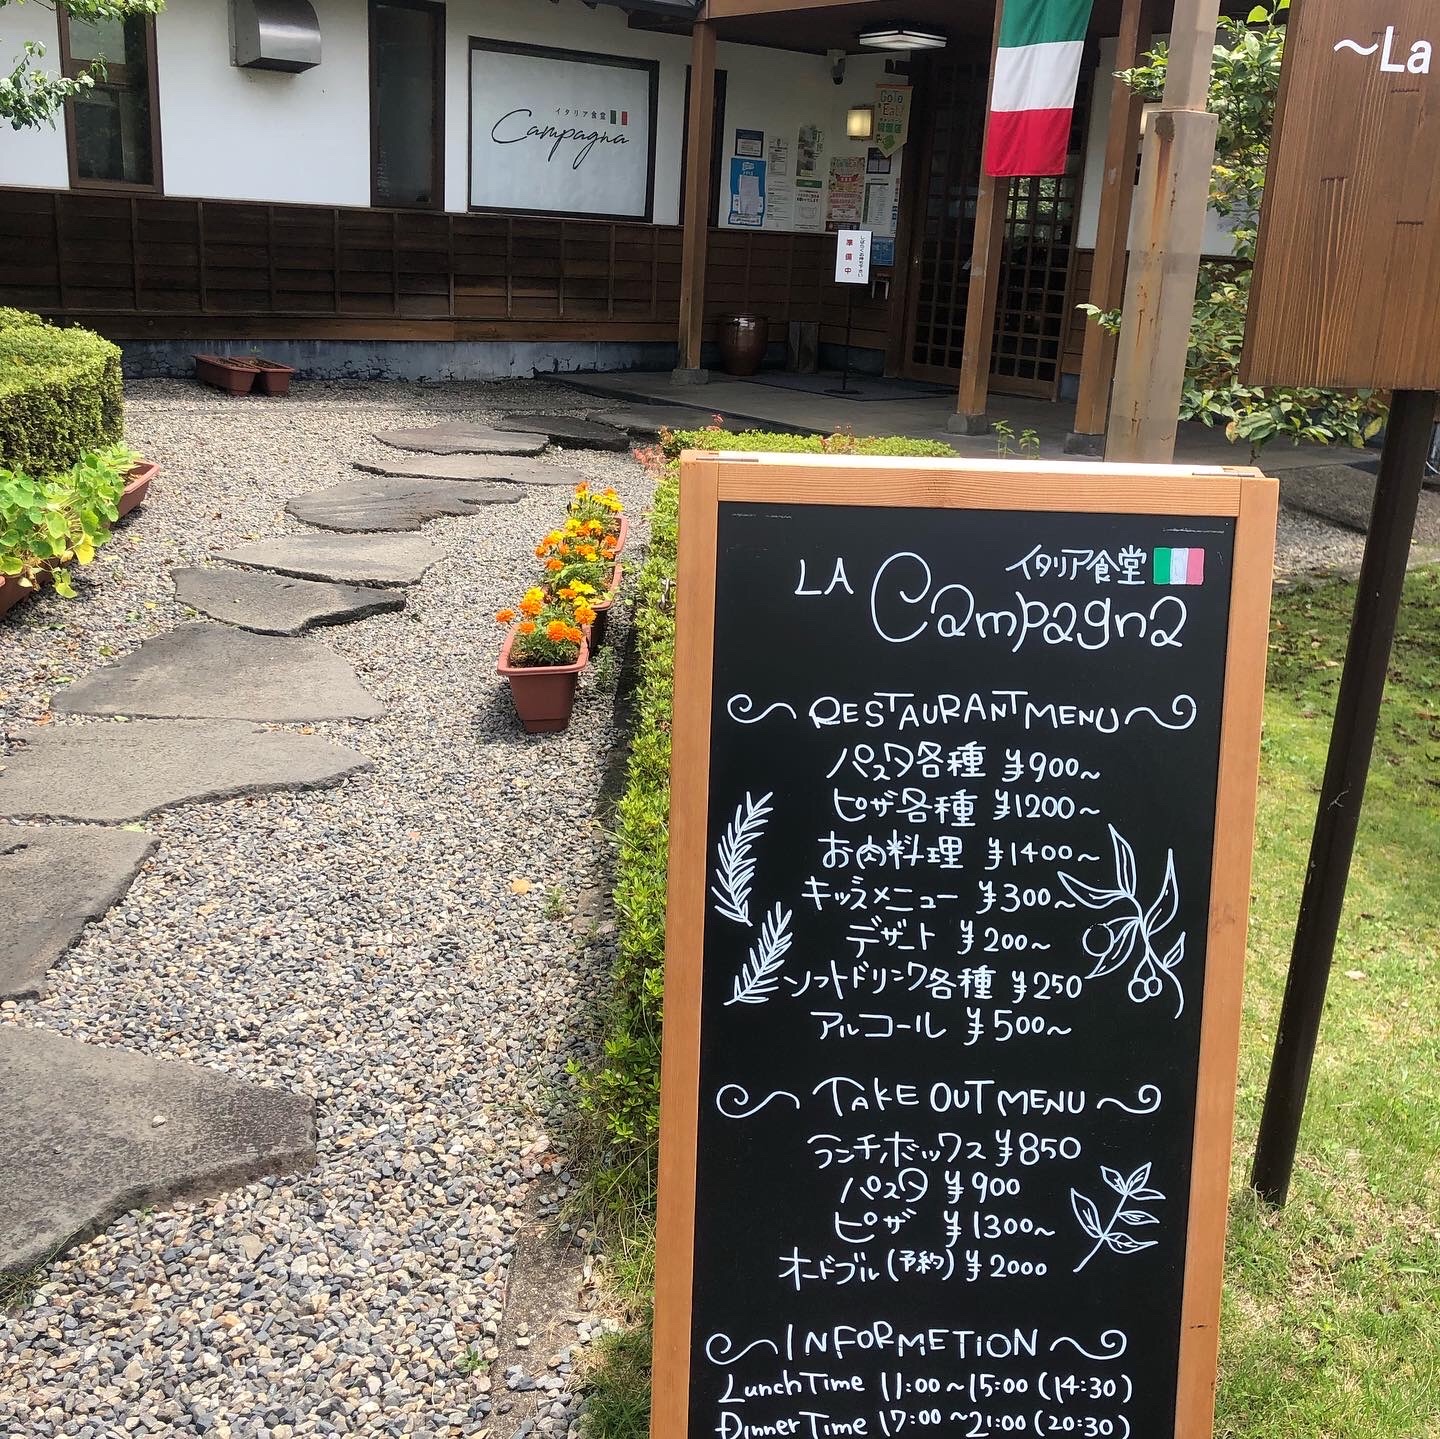 ~La
イタリア食堂
Campagna
GoTo
Eat!
しばらくお待ち下さい
準備中
イタリア食堂
LA Campagna
RESTAURANT MENU
パスタ各種 ¥900~
ピザ各種 ¥1200~
お肉料理 ¥1400~
キッズメニュー ¥300~
デザート ¥200~
ソフトドリンク各種 ¥250
アルコール ¥500~
TAKE OUT MENU
ランチボックス ¥850
パスタ ¥900
ピザ ¥1300~
オードブル(予約) ¥2000
INFORMETION
Lunch Time 11:00~15:00 (14:30)
Dinner Time 17:00~21:00 (20:30)